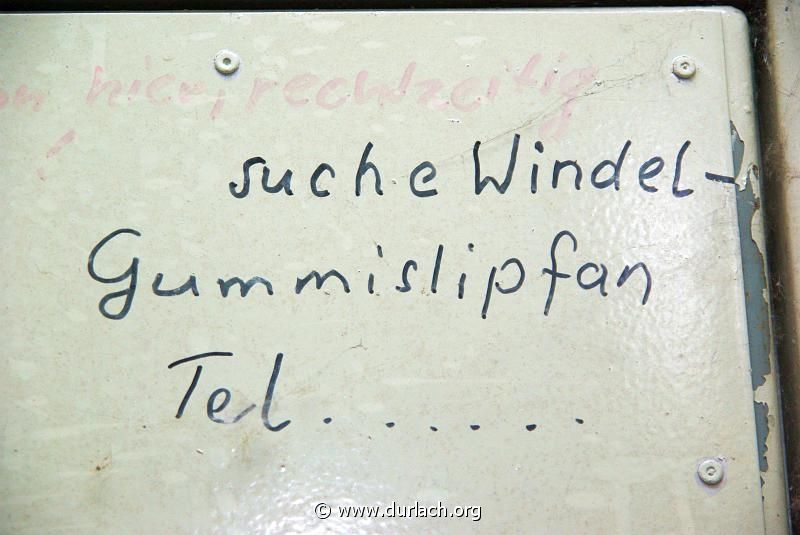 hier, rechtzeitig
suche Windel-
Gummislipfan
Tel.......
© www.durlach.org